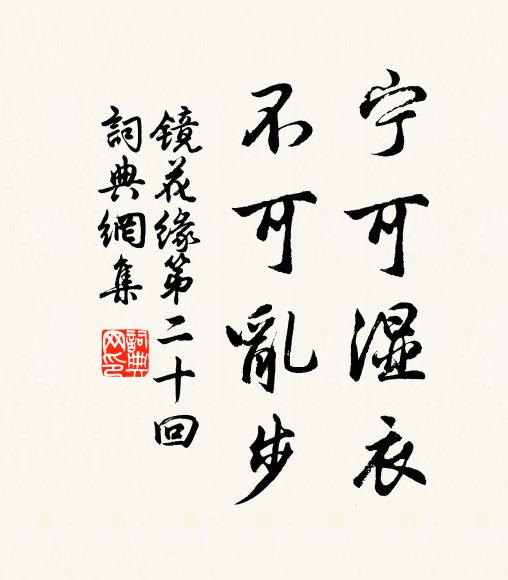 宁可湿衣
不可亂步
镜花缘第二十回
詞典網集
詞典网印